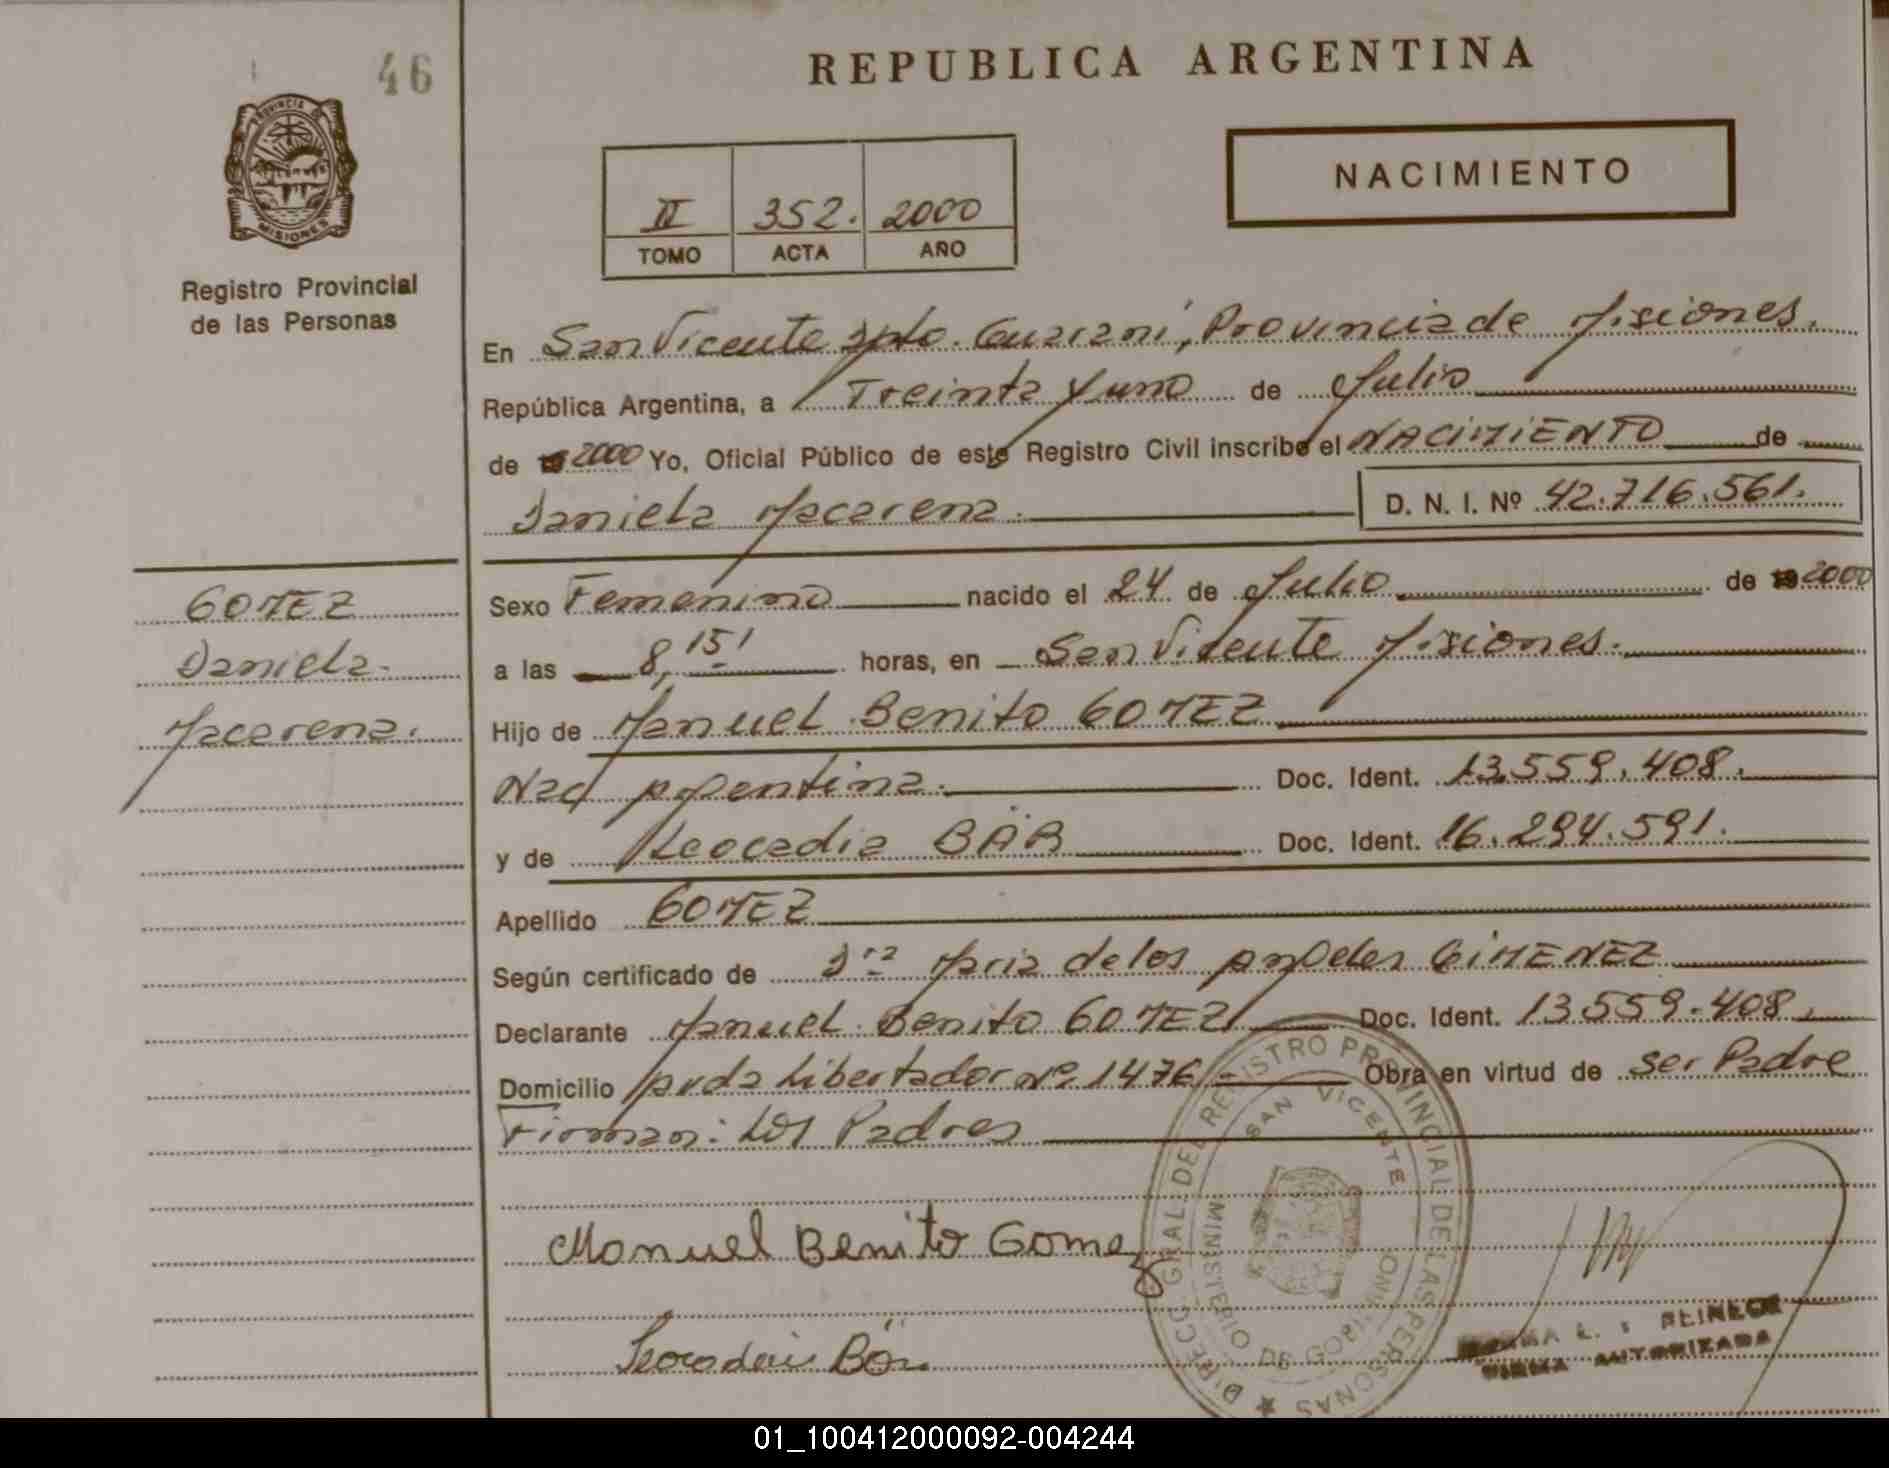 46
REPUBLICA ARGENTINA
PROVINCIA DE
MISIONES
Registro Provincial
de las Personas
NACIMIENTO
II 352. 2000
TOMO ACTA AÑO
En San Vicente Dpto. Guaraní, Provincia de Misiones.
República Argentina, a Treinta y uno de Julio
de 2000 Yo, Oficial Público de este Registro Civil inscribo el NACIMIENTO de
Daniela Macarena. D. N. I. Nº 42.716.561.
GOMEZ
Daniela
Macarena.
Sexo Femenino nacido el 24 de Julio de 2000
a las 8,15' horas, en San Vicente Misiones.
Hijo de Manuel Benito GOMEZ
Nac Argentina. Doc. Ident. 13.559.408.
y de Leocadia BÄR Doc. Ident. 16.294.591.
Apellido GOMEZ
Según certificado de Dra Maria de los Angeles GIMENEZ
Declarante Manuel Benito GOMEZ Doc. Ident. 13.559.408.
Domicilio Avda Libertador Nº 1476 Obra en virtud de ser Padre
Firman: Los Padres
Manuel Benito Gomez
Leocadia Bär
DIRECC. GRAL. DEL REGISTRO PROVINCIAL DE LAS PERSONAS
SAN VICENTE
MINISTERIO DE GOBIERNO
L.
FIRMA AUTORIZADA
01_100412000092-004244